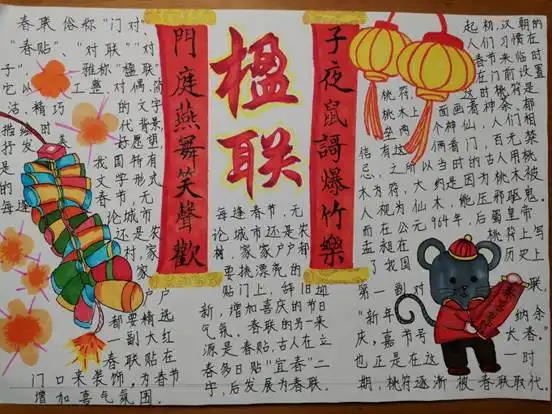 楹联
子夜鼠謌爆竹樂
門庭燕舞笑聲歡
春联俗称"门对"
"春贴"、"对联"对
子"雅称"楹联"
它以工整、对偶、简
洁精巧的文字
描 代背景,
抒发 好愿望
是 我国特有
的 文学形式
每逢春节,无
论城市
还是农
村,家
家户户
都要精选
一副大红
春联贴在
门口来装饰,为春节
增加喜气氛围.
每逢春节,无
论城市还是农
村,家家户户都
要挑漂亮的
贴门上,辞旧迎
新,增加喜庆的节日
气氛。春联的另一来
源是春贴,古人在立
春多日贴"宜春"二
字,后发展为春联.
起初,汉朝的
人们习惯在
春节来临时
在门前设置
桃符.这时桃符是
桃木上面画着神荼、郁
垒两个神仙,人们相
信有这俩看门,百无禁
忌.之所以当时的古人用桃
木为符,大约是因为桃木被
人视为仙木,能压邪驱鬼。
而在公元964年,后蜀皇帝
孟昶在桃符上写
了我国历史上
第一副对联,
"新年纳余
庆,嘉节号长春。"
也正是在这一时
期,桃符逐渐被春联取代.